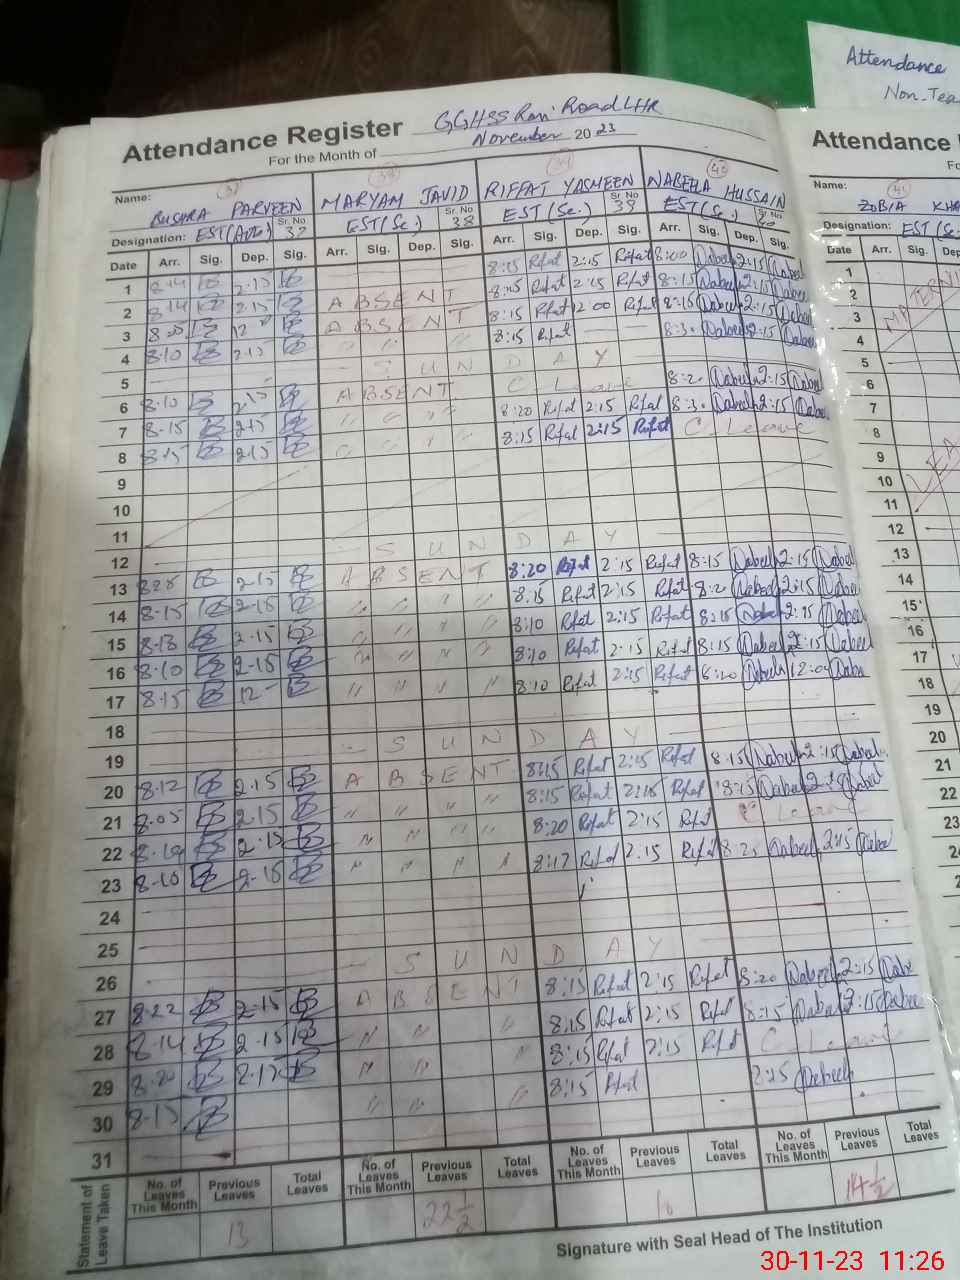 Attendance
Non-Tea
Attendance Register GGHSS Rani Road LHR
For the Month of November 2023
Name: 37 38 39 40
BUSHRA PARVEEN MARYAM JAVID RIFFAT YASMEEN NABEELA HUSSAIN
Designation: EST(Arts) Sr. No 37 EST(Sc.) Sr. No 38 EST(Sc.) Sr. No 39 EST(Sc.) Sr. No 40
Date Arr. Sig. Dep. Sig. Arr. Sig. Dep. Sig. Arr. Sig. Dep. Sig. Arr. Sig. Dep. Sig.
1 8-14 2-15 8:15 Rifat 2:15 Rifat 8:00 Nabeela 2:15 Nabeela
2 8-14 2-15 ABSENT 8:15 Rifat 2:15 Rifat 8:15 Nabeela 2:15 Nabeela
3 12 ABSENT 8:15 Rifat 12 00 Rifat 8:15 Nabeela 2:15 Nabeela
4 8-10 2-15 " " " " 8:15 Rifat 8:30 Nabeela 2:15 Nabeela
5 SUNDAY
6 8-10 2-15 ABSENT C. Leave 8:20 Nabeela 2:15 Nabeela
7 8-15 2-15 " " " " 8:20 Rifat 2:15 Rifat 8:30 Nabeela 2:15 Nabeela
8 8-15 2-15 " " " " 8:15 Rifat 2:15 Rifat C. Leave
9
10
11
12 SUNDAY
13 2-15 ABSENT 8:20 Rifat 2:15 Rifat 8:15 Nabeela 2:15 Nabeela
14 8-15 2-15 " " " " 8:15 Rifat 2:15 Rifat 8:20 Nabeela 2:15 Nabeela
15 8-13 2-15 " " " " 8:10 Rifat 2:15 Rifat 8:15 Nabeela 2:15 Nabeela
16 8-10 2-15 " " " " 8:10 Rifat 2:15 Rifat 8:15 Nabeela 2:15 Nabeela
17 8-15 12 " " " " 8:10 Rifat 2:15 Rifat 8:20 Nabeela 12:0 Nabeela
18
19 SUNDAY
20 8-12 2-15 ABSENT 8:15 Rifat 2:15 Rifat 8:15 Nabeela 2:15 Nabeela
21 8-05 2-15 " " " " 8:15 Rifat 2:15 Rifat 8:15 Nabeela Nabeela
22 2-15 " " " " 8:20 Rifat 2:15 Rifat C. Leave
23 8-10 2-15 " " " " 8:17 Rifat 2:15 Rifat 8:25 Nabeela 2:15 Nabeela
24
25
26 SUNDAY
27 8-22 2-15 ABSENT 8:15 Rifat 2:15 Rifat 8:20 Nabeela 2:15 Nabeela
28 8-14 2-15 " " 8:15 Rifat 2:15 Rifat 8:15 Nabeela 2:15 Nabeela
29 8-20 2-15 " " " 8:15 Rifat 2:15 Rifat C. Leave
30 8-15 " " " 8:15 Rifat Nabeela
31
Statement of Leave Taken No. of Leaves This Month Previous Leaves Total Leaves No. of Leaves This Month Previous Leaves Total Leaves No. of Leaves This Month Previous Leaves Total Leaves No. of Leaves This Month Previous Leaves Total Leaves
13 22 1/2 10 14 1/2
Signature with Seal Head of The Institution
Attendance
Name: 41
ZOBIA KHA
Designation: EST (Sc
Date Arr. Sig. De
1
2
3
4
5
6
7
8
9
10
11
12
13
14
15
16
17
18
19
20
21
22
23
30-11-23 11:26